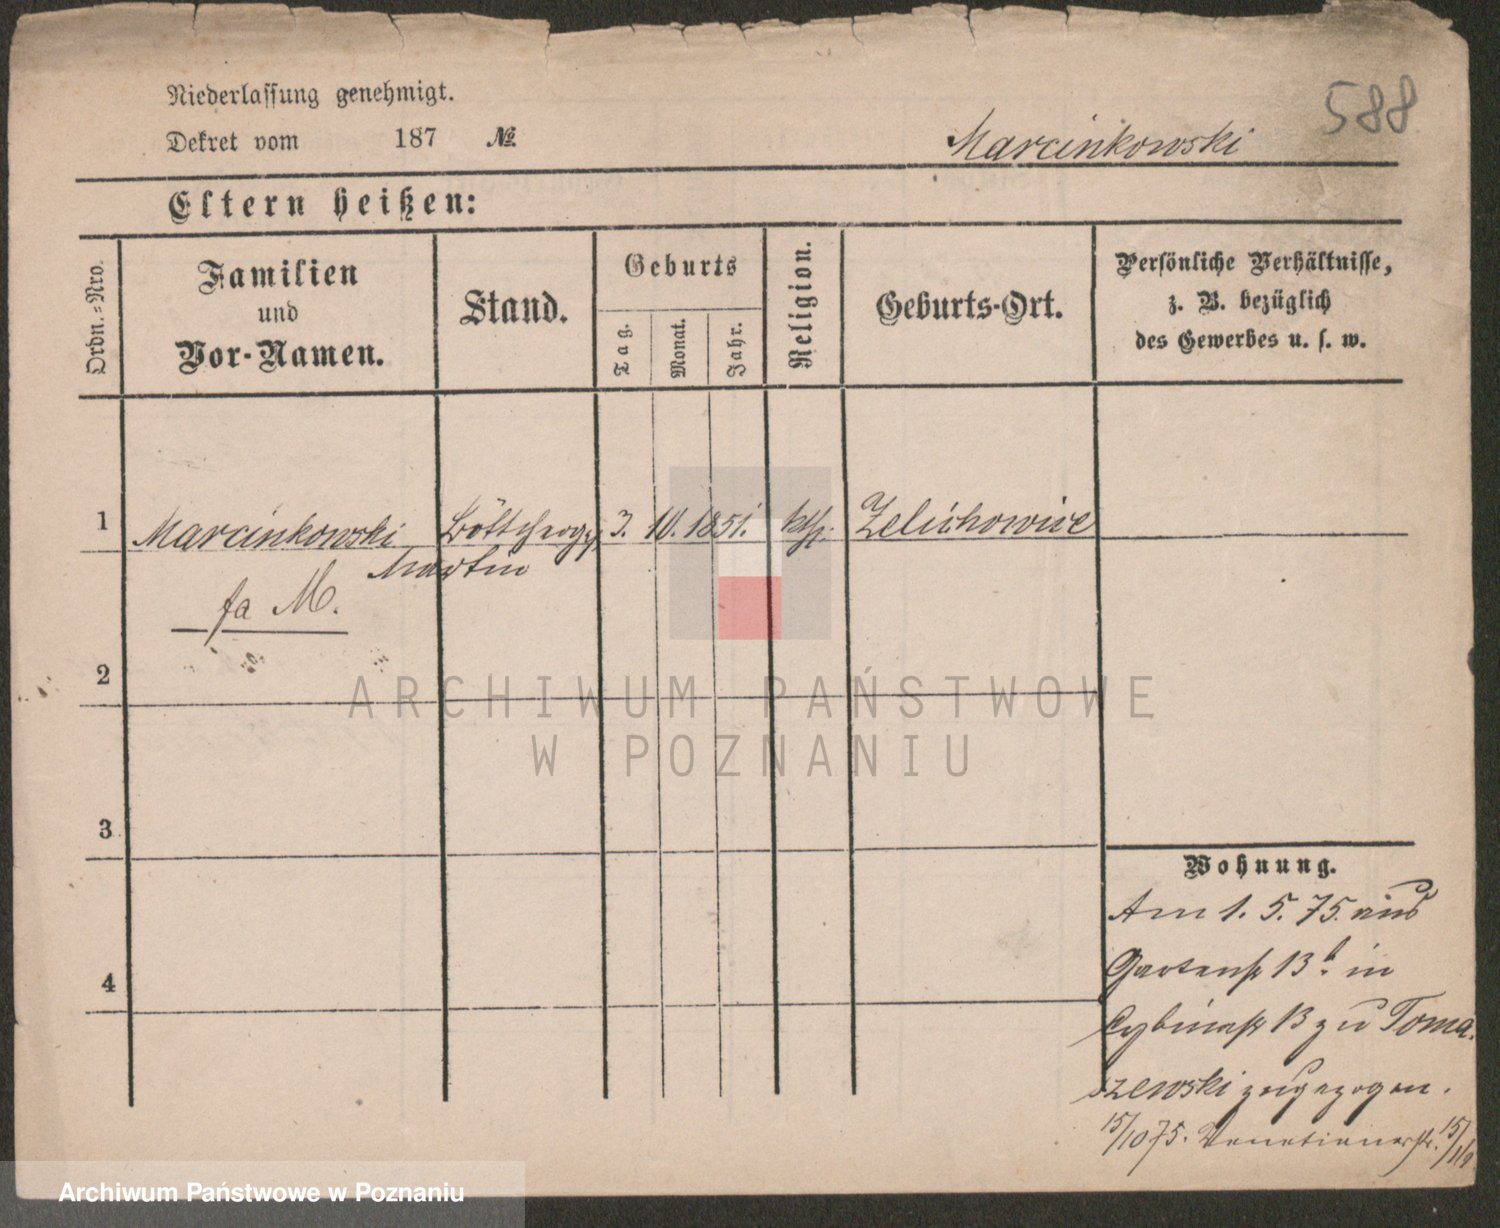 588
Niederlassung genehmigt.
Dekret vom 187 №
Marcinkowski
Eltern heißen:
Ordn.=Nro.
Familien
und
Vor-Namen.
Stand.
Geburts
Tag.
Monat.
Jahr.
Religion.
Geburts-Ort.
Persönliche Verhältnisse,
z. B. bezüglich
des Gewerbes u. s. w.
1 Marcinkowski 3. 10. 1851. kth. Zelichowice
Martin
fa M.
2
3
4
Wohnung.
Am 1. 5. 75. aus
Gartenstr 13b. in
Cybinastr 13 zu Toma
szewski zugezogen.
15/10 75. Venetianerstr. 15/
ARCHIWUM PAŃSTWOWE
W POZNANIU
Archiwum Państwowe w Poznaniu